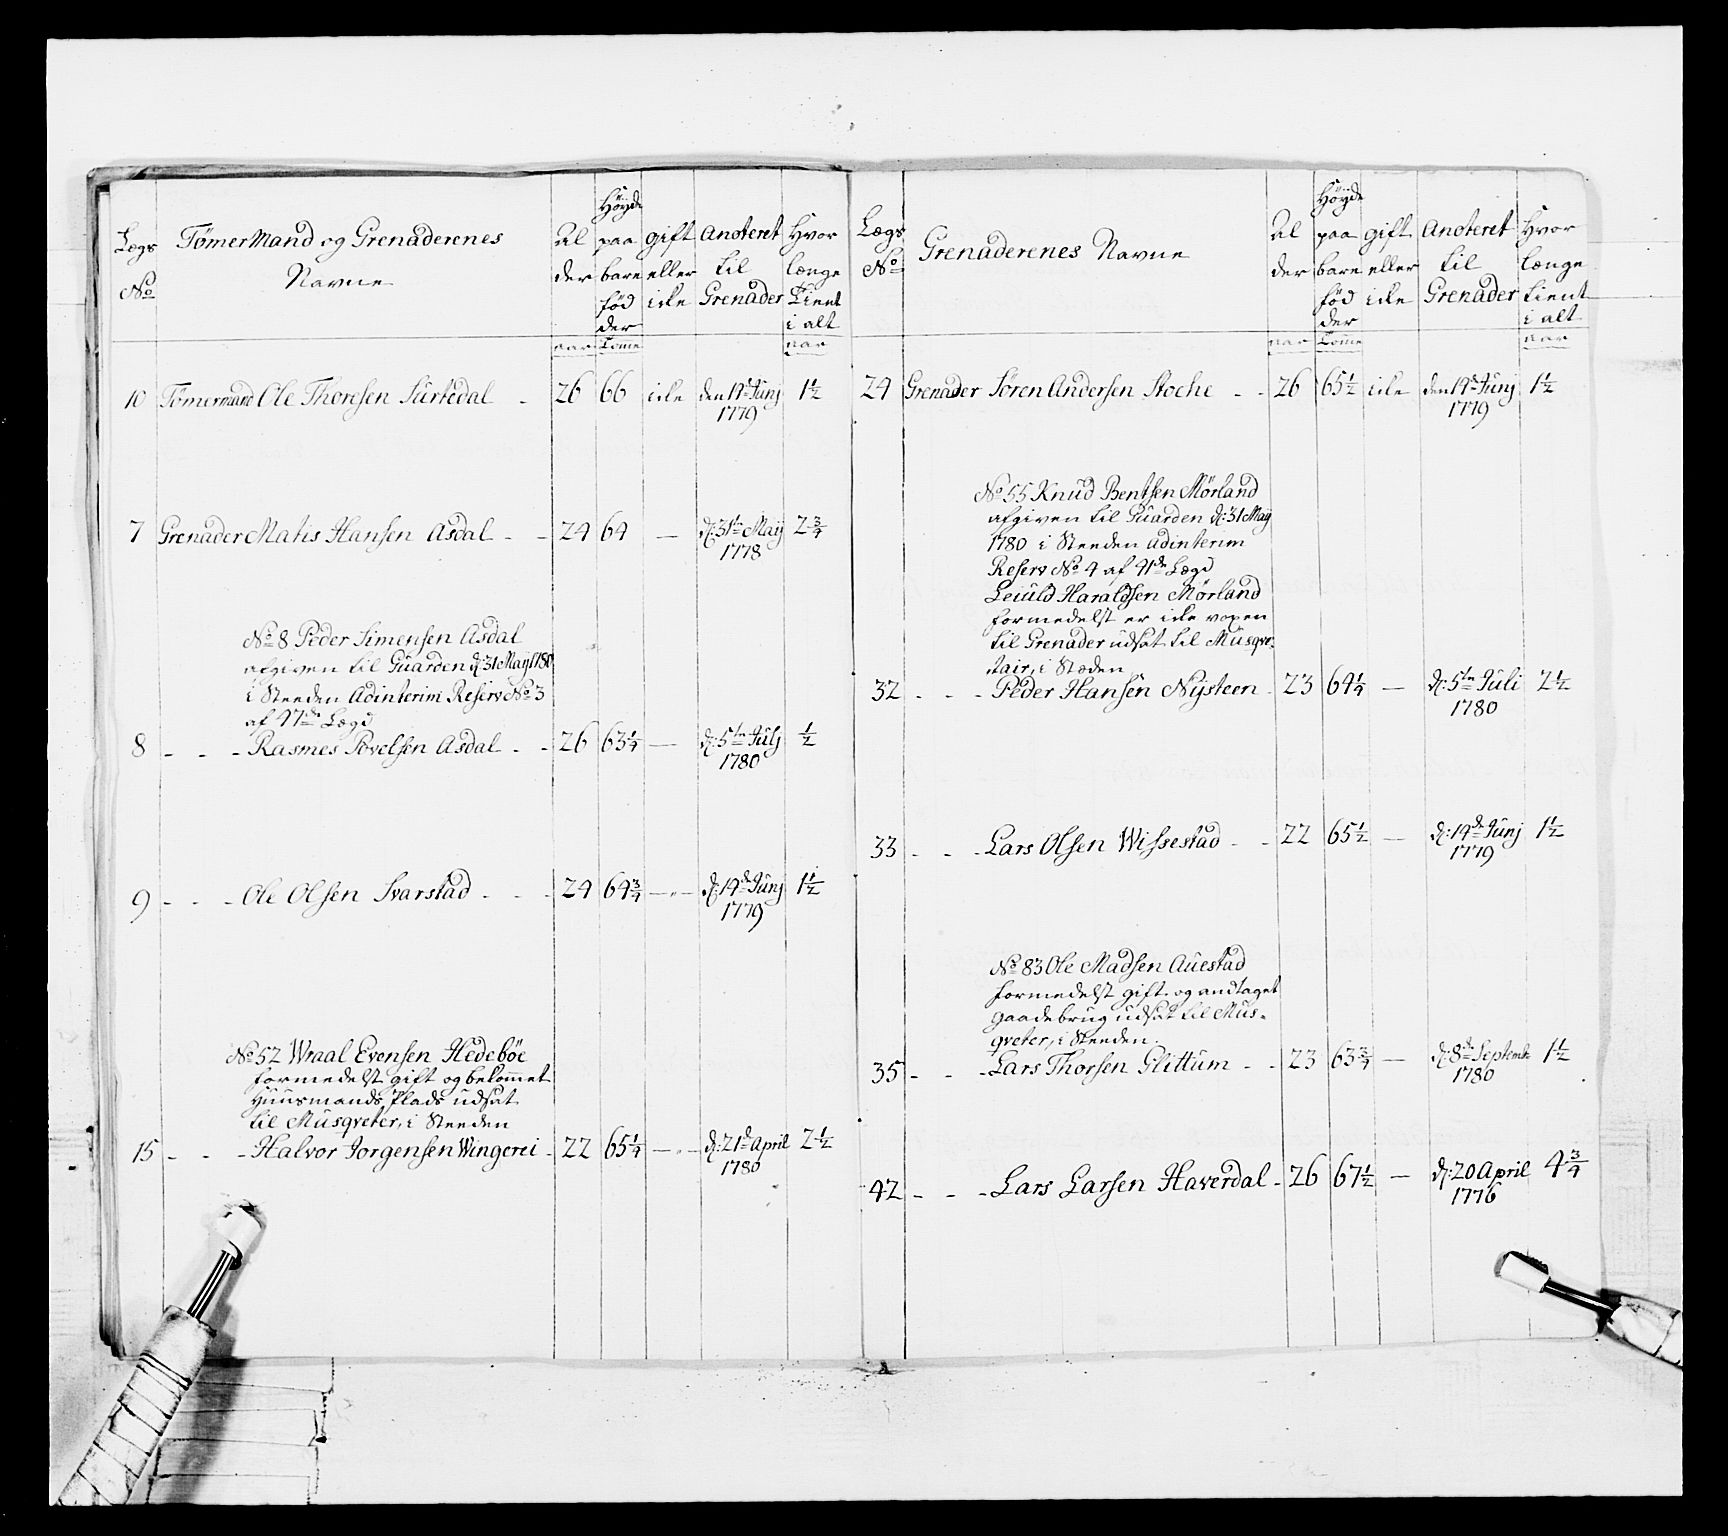 Lægs No
TømerMand og Grenaderenes Navne
Al der
Høyde paa bare fød der
gift eller icke
Anoteret til Grenader
Hvor længe tient i alt
aar Tome aar
10 Tømermand Ole Thoresen Surtedal - 26 66 icke den 19de Junj 1779 1½
7 Grenader Matis Hansen Asdal - - 24 64 — d: 31te Maij 1778 2¾
No 8 Peder Simensen Asdal
afgiven til Guarden d: 31 Maij 1780
i Steeden Adinterim Reserv No 3
af 47de Lægd
8 - - - Rasmes Povelsen Asdal - - 26 63¼ — d: 5te Julj 1780 ½
9 - - - Ole Olsen Svarstad - - - 24 64¾ —"— d: 14de Junj 1779 1½
No 52 Wraal Evensen Hedebøe
formedelst gift og bekommet
Huusmands Plads udsat
til Musqveter, i Steeden
15 - - - Halvor Jorgensen Wingerei - 22 65¼ —"— d: 21de April 1780 2½
Lægs No
Grenaderenes Navne
Al der
Høyde paa bare fød der
gift eller icke
Anoteret til Grenader
Hvor længe tient i alt
aar Tome aar
24 Grenader Søren Andersen Stoche - - 26 65½ icke den 19de Junj 1779 1½
No 55 Knud Bentsen Mørland
afgiven til Guarden d: 31 Maij
1780 i Steeden Adinterim
Reserv No 4 af 41de Lægd
Leiuld Haraldsen Mørland
formedelst er icke voxen
til Grenader udsat til Musqve-
tair, i Stæden
32 - - - Peder Hansen Nysteen - 23 64¼ — d: 5te Juli 1780 2½
33 - - - Lars Olsen Wissestad - - 22 65½ — d: 14de Junj 1779 1½
No 83 Ole Madsen Auestad
formedelst gift og andtaget
gaadebrug udsat til Mus-
qveter, i Steeden.
35 - - - Lars Thorsen Glittum - - 23 63¾ — d: 8de Septembr 1780 1½
42 - - - Lars Larsen Haverdal - 26 67½ — d: 20 April 1776 4¾